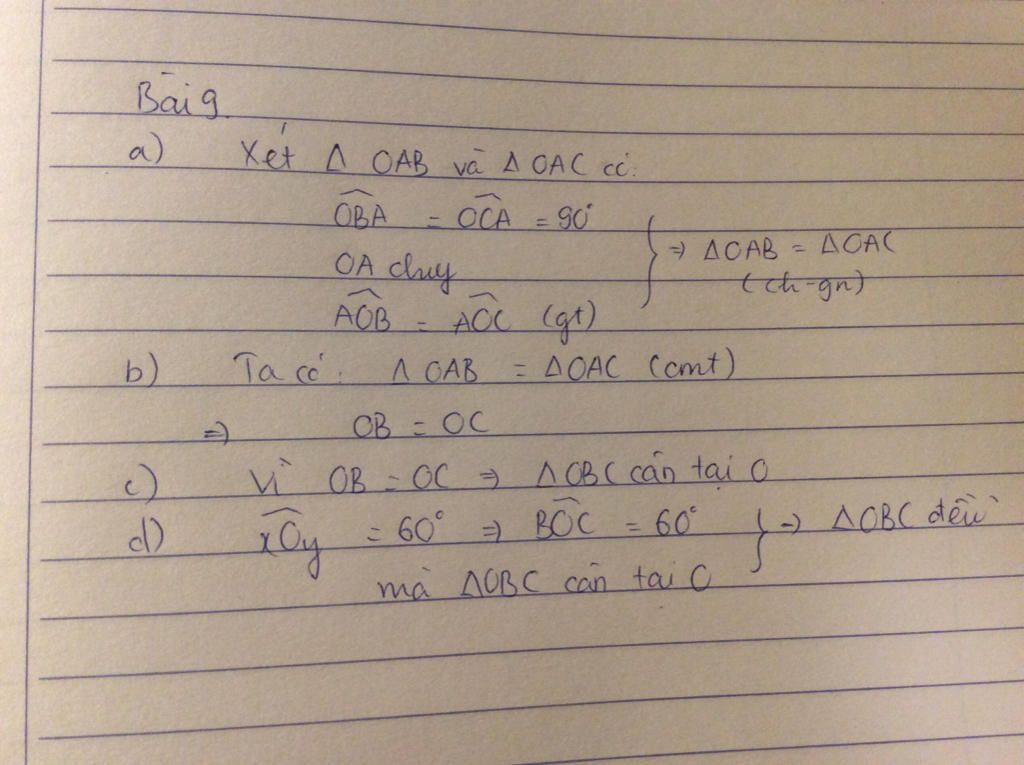 Bài 9.
a) Xét Δ OAB và Δ OAC có:
OBA = OCA = 90°
OA chung
AOB = AOC (gt)
} ⇒ ΔOAB = ΔOAC
(ch-gn)
b) Ta có: Δ OAB = ΔOAC (cmt)
⇒ OB = OC
c) Vì OB = OC ⇒ ΔOBC cân tại O
d) xOy = 60° ⇒ BOC = 60° } ⇒ ΔOBC đều
mà ΔOBC cân tại O